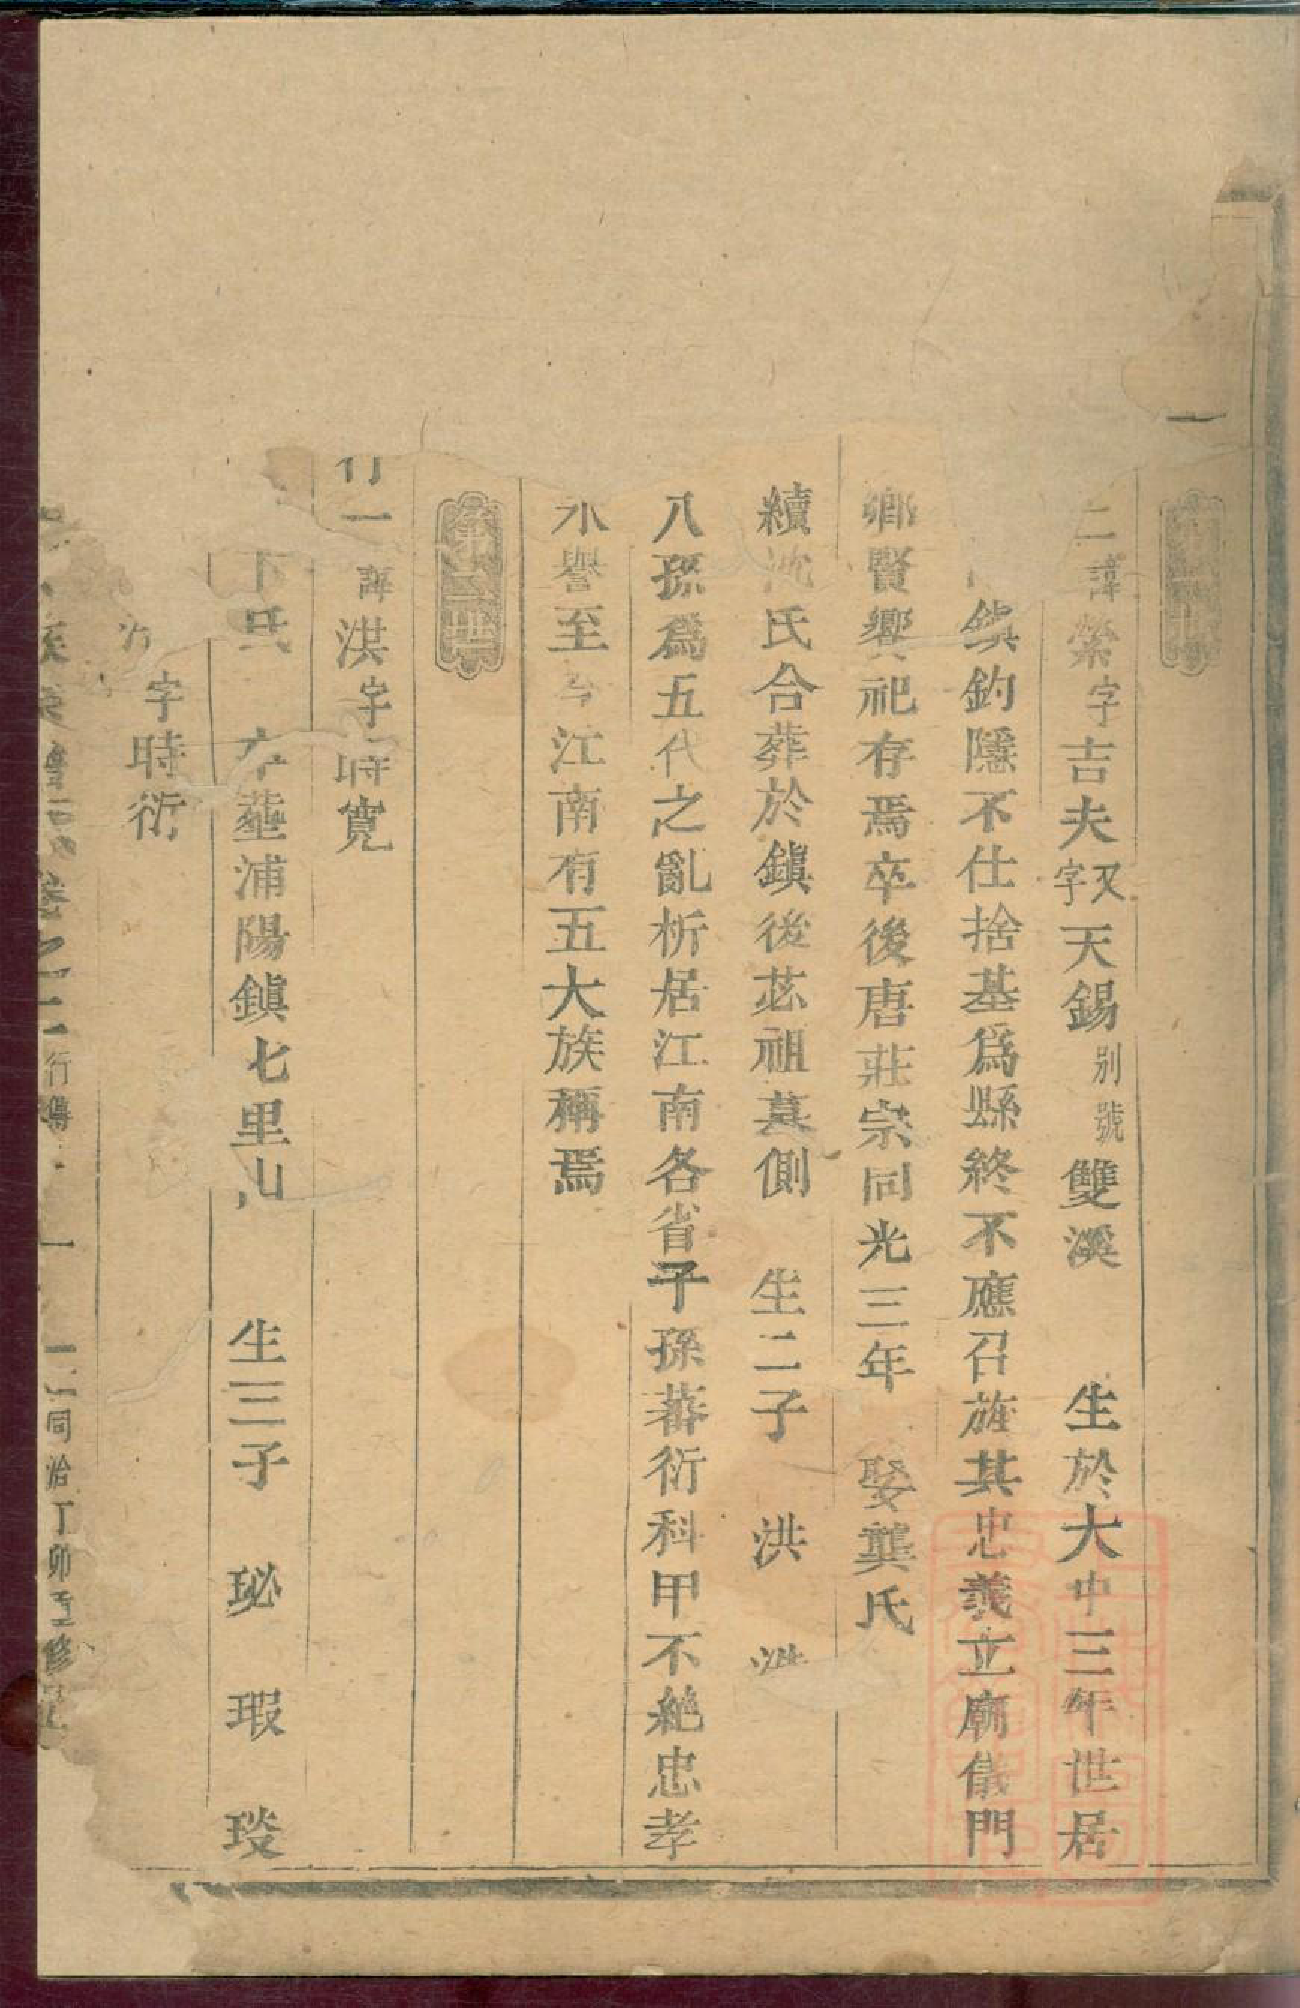 一
第二世
二諱縈字吉夫又字天錫別號雙溪 生於大中三年世居
鎮釣隱不仕捨基爲縣終不應召旌其忠義立廟儀門
鄉賢鄉祀存焉卒後唐莊宗同光三年 娶龔氏
續沈氏合葬於鎮後苾祖墓側 生二子 洪
八孫爲五代之亂析居江南各省子孫蕃衍科甲不絶忠孝
譽至今江南有五大族稱焉
第三世
行一諱洪字時寬
氏 卒塟浦陽鎮七里山 生三子 珌 瑕 琰
字時衍
卷之二 行傳 一 同治丁卯重修